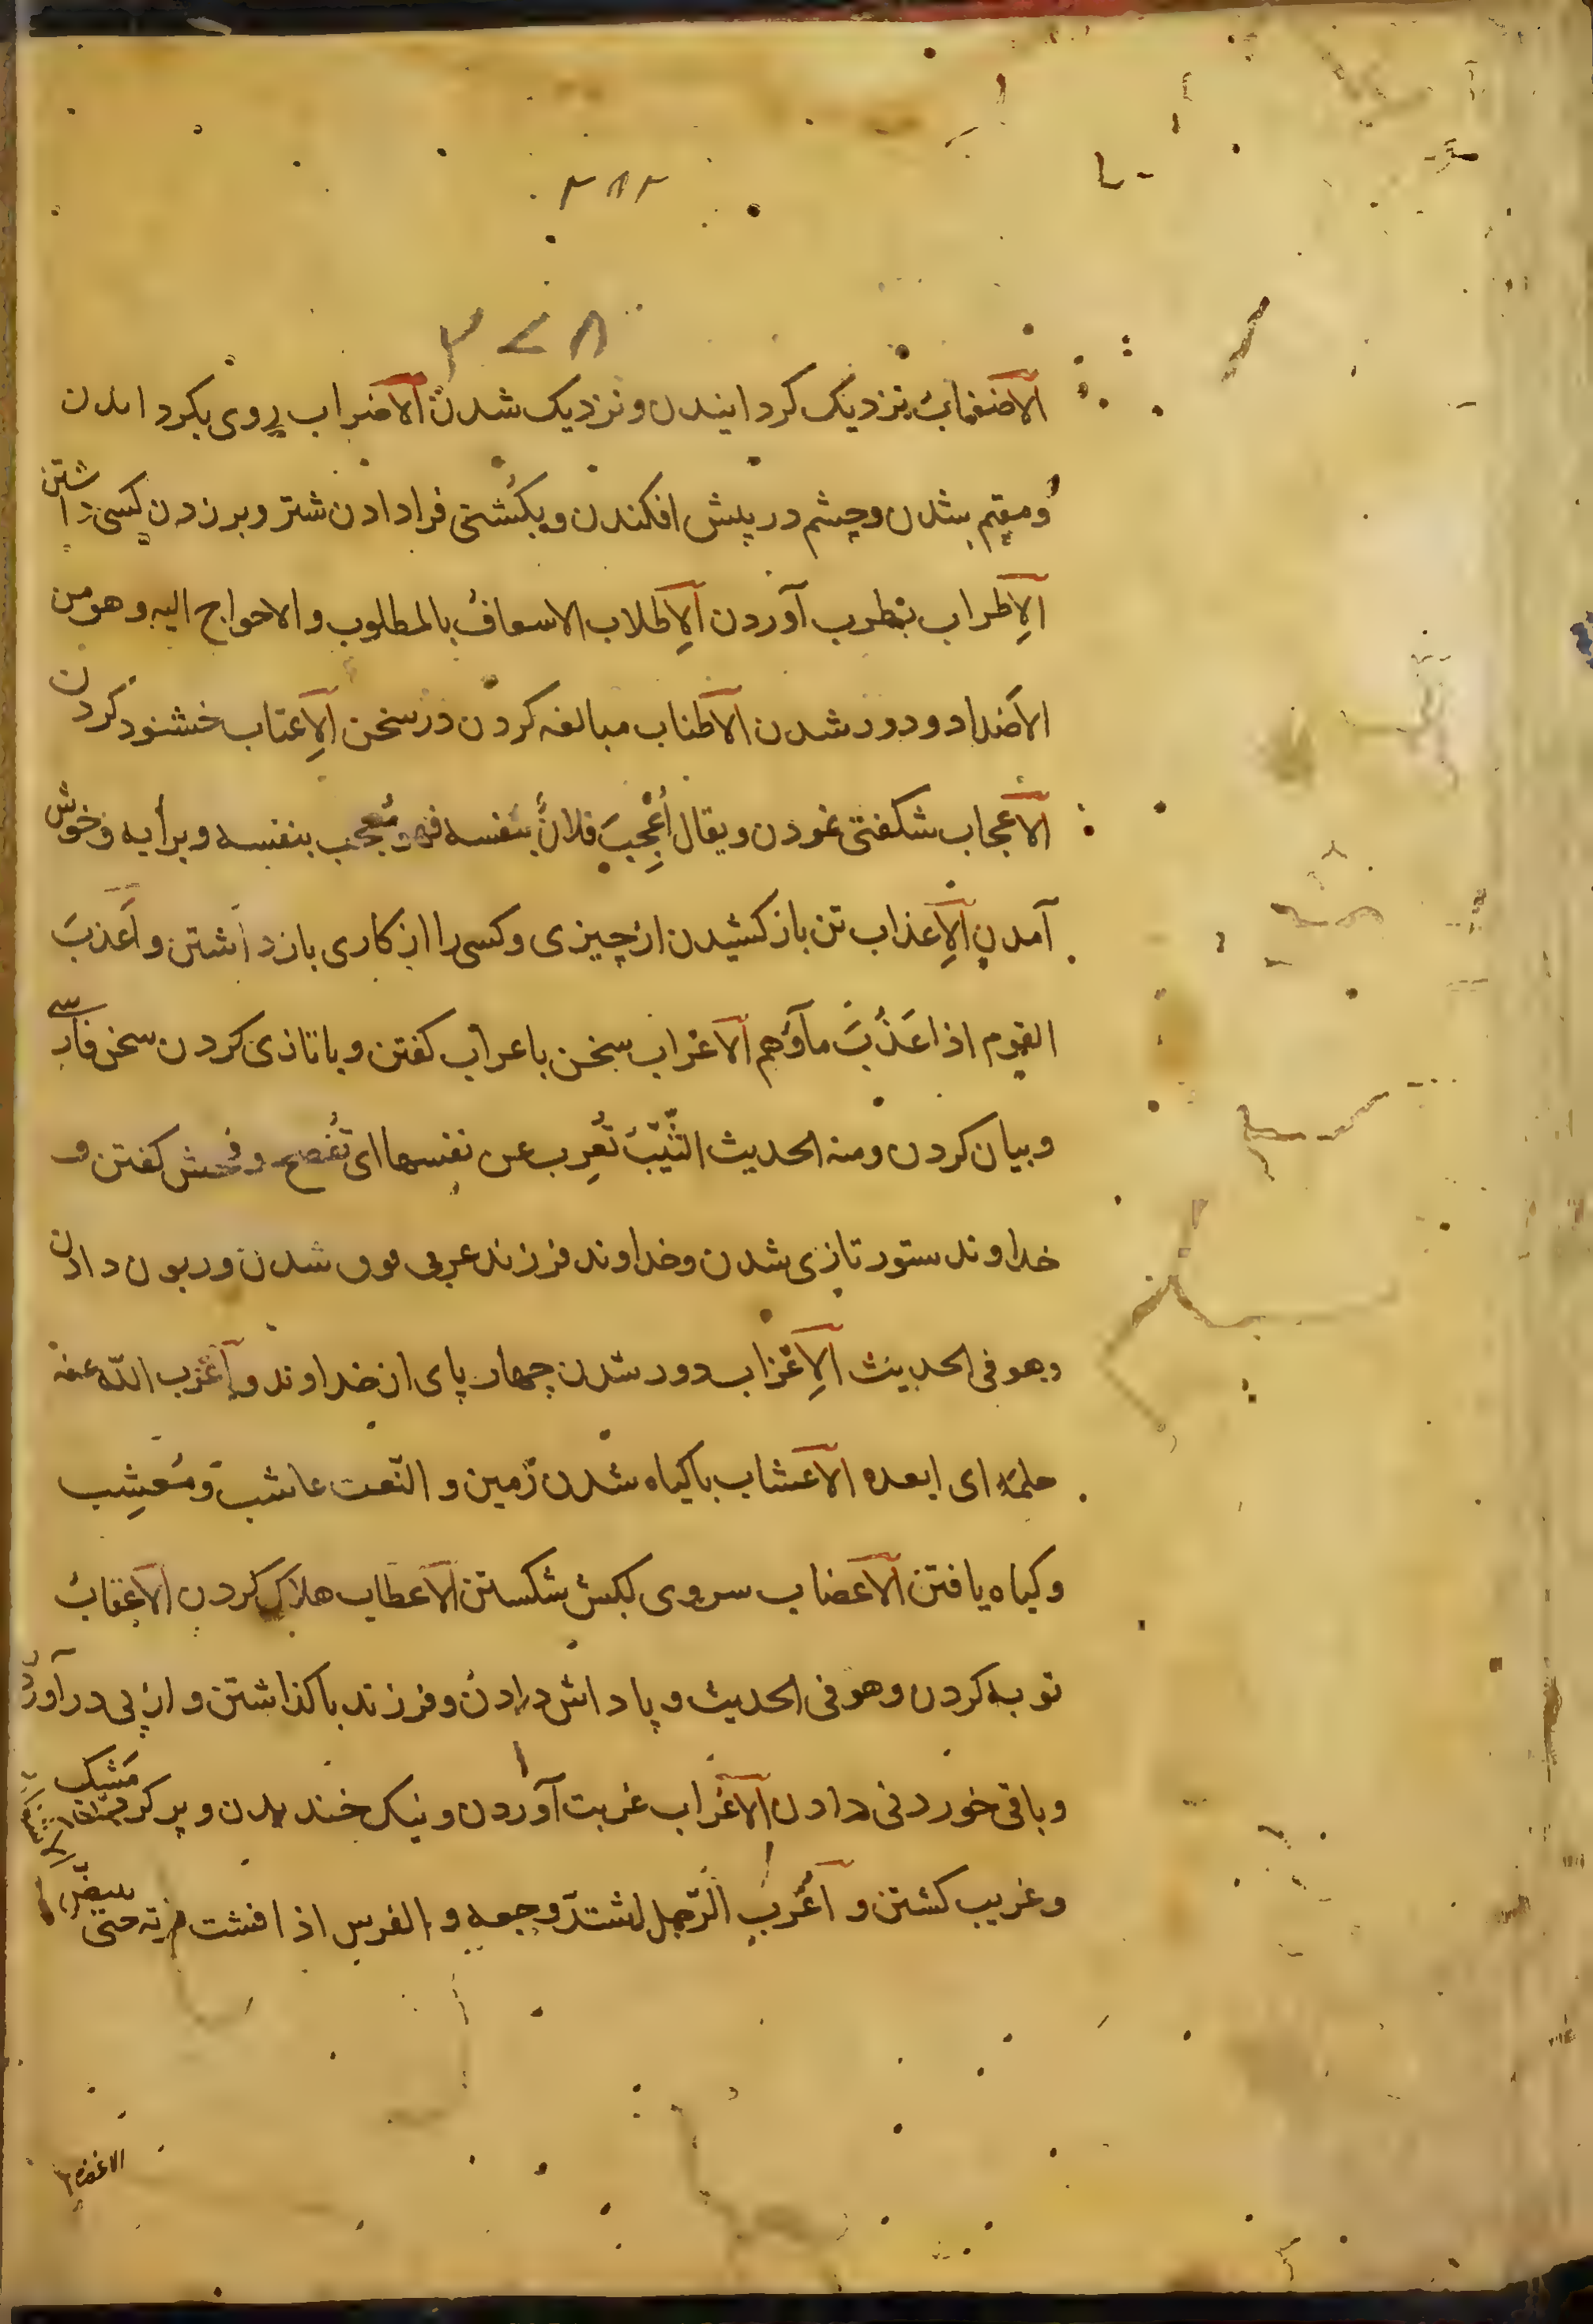 ۳۸۲
۳۷۸
الاضقاب نزدیک کردانیدن و نزدیک شدن الاضراب روی بکردانیدن
و مقیم شدن و چشم در پیش افکندن و بکشنی فرادادن شتر و بر زدن کسی داشتن
الاِطراب بطرب آوردن الاِطلاب الاسعافُ بالمطلوب والاحواج الیه وهو من
الاضداد و دور شدن الاطناب مبالغه کردن در سخن الاِعتاب خشنود کردن
الاعجاب شکفتی نمودن ویقال أُعْجِبَ فلانٌ بنفسه فهو مُعجَب بنفسه وبرایه و خوش
آمدن الاِعذاب تن باز کشیدن از چیزی و کسی را از کاری بازداشتن و أَعذبَ
القوم اذا عَذُبَ ماؤهم الاعراب سخن باعراب کفتن و با تازی کردن سخن فارسی
و بیان کردن ومنه الحدیث الثَّیِّبُ تُعرِب عن نفسها ای تُفصح و فحش کفتن و
خداوند ستور تازی شدن و خداوند فرزند عربی شدن و ربون دادن
وهو فی الحدیث الاِعْزاب دور شدن چهار پای از خداوند و أعْزب الله عنه
حلمَه ای ابعده الاعشاب باکیاه شدن زمین و النّعت عاشب و مُعشِب
و کیاه یافتن الاعضاب سروی کبش شکستن الاعطاب هلاک کردن الاعقابُ
توبه کردن وهو فی الحدیث و پاداش دادن و فرزند باکذاشتن و از پی در آوردن
و باقی خوردنی دادن الاغراب غربت آوردن و نیک خندیدن و پر کردن مشک
و غریب کشتن و أُغْرِبَ الرّجل اشتدّ وجعه و الفرس اذا فشت غرته حتی